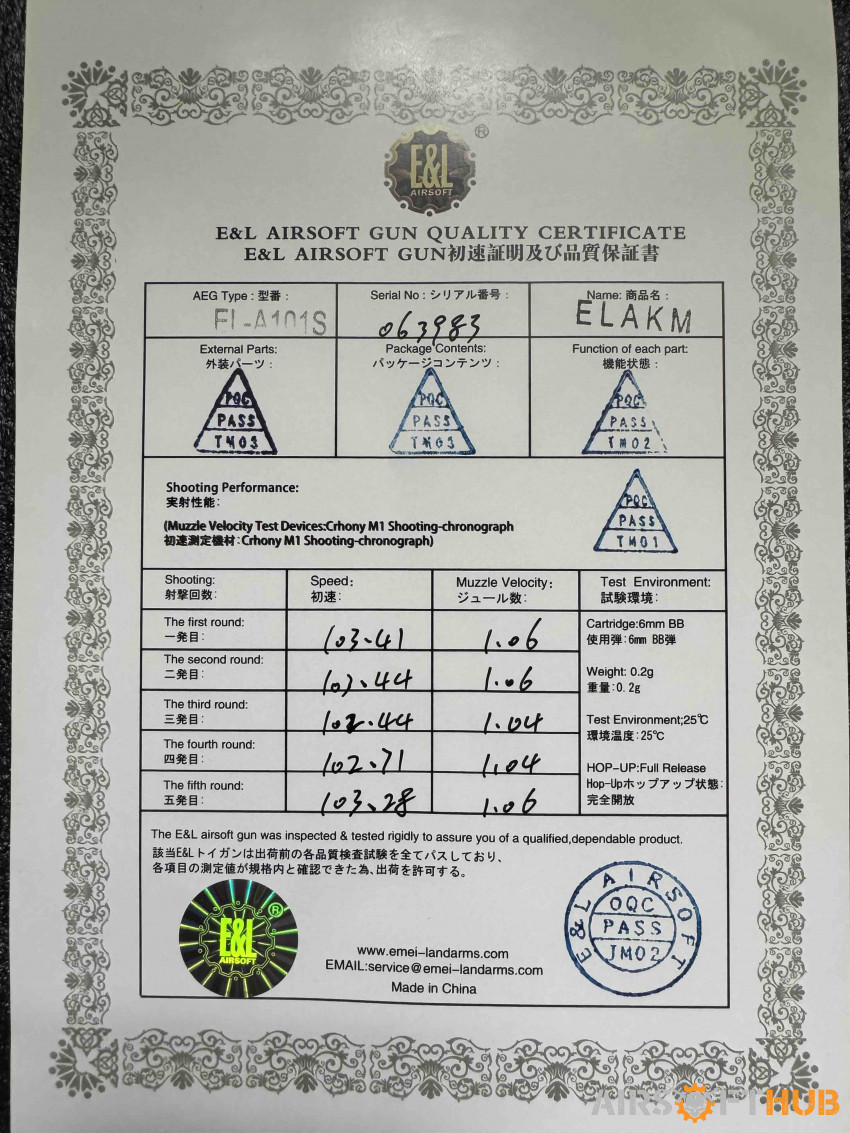 E&L
AIRSOFT
®
E&L AIRSOFT GUN QUALITY CERTIFICATE
E&L AIRSOFT GUN初速証明及び品質保証書
AEG Type : 型番 :
EL-A101S
Serial No : シリアル番号 :
063983
Name: 商品名 :
ELAKM
External Parts:
外装パーツ :
PQC
PASS
TM03
Package Contents:
パッケージコンテンツ :
PQC
PASS
TM03
Function of each part:
機能状態 :
PQC
PASS
TM02
Shooting Performance:
実射性能:
(Muzzle Velocity Test Devices:Crhony M1 Shooting-chronograph
初速測定機材:Crhony M1 Shooting-chronograph)
PQC
PASS
TM01
Shooting:
射撃回数:
Speed:
初速:
Muzzle Velocity:
ジュール数:
Test Environment:
試験環境:
The first round:
一発目:
103.41
1.06
The second round:
二発目:
103.44
1.06
The third round:
三発目:
102.44
1.04
The fourth round:
四発目:
102.71
1.04
The fifth round:
五発目:
103.28
1.06
Cartridge:6mm BB
使用弾:6mm BB弾
Weight: 0.2g
重量:0.2g
Test Environment;25℃
環境温度:25℃
HOP-UP:Full Release
Hop-Upホップアップ状態:
完全開放
The E&L airsoft gun was inspected & tested rigidly to assure you of a qualified,dependable product.
該当E&Lトイガンは出荷前の各品質検査試験を全てパスしており、
各項目の測定値が規格内と確認できた為、出荷を許可する。
®
E&L
AIRSOFT
www.emei-landarms.com
EMAIL:service@emei-landarms.com
Made in China
E&L AIRSOFT
OQC
PASS
JM02
AIRSOFTHUB